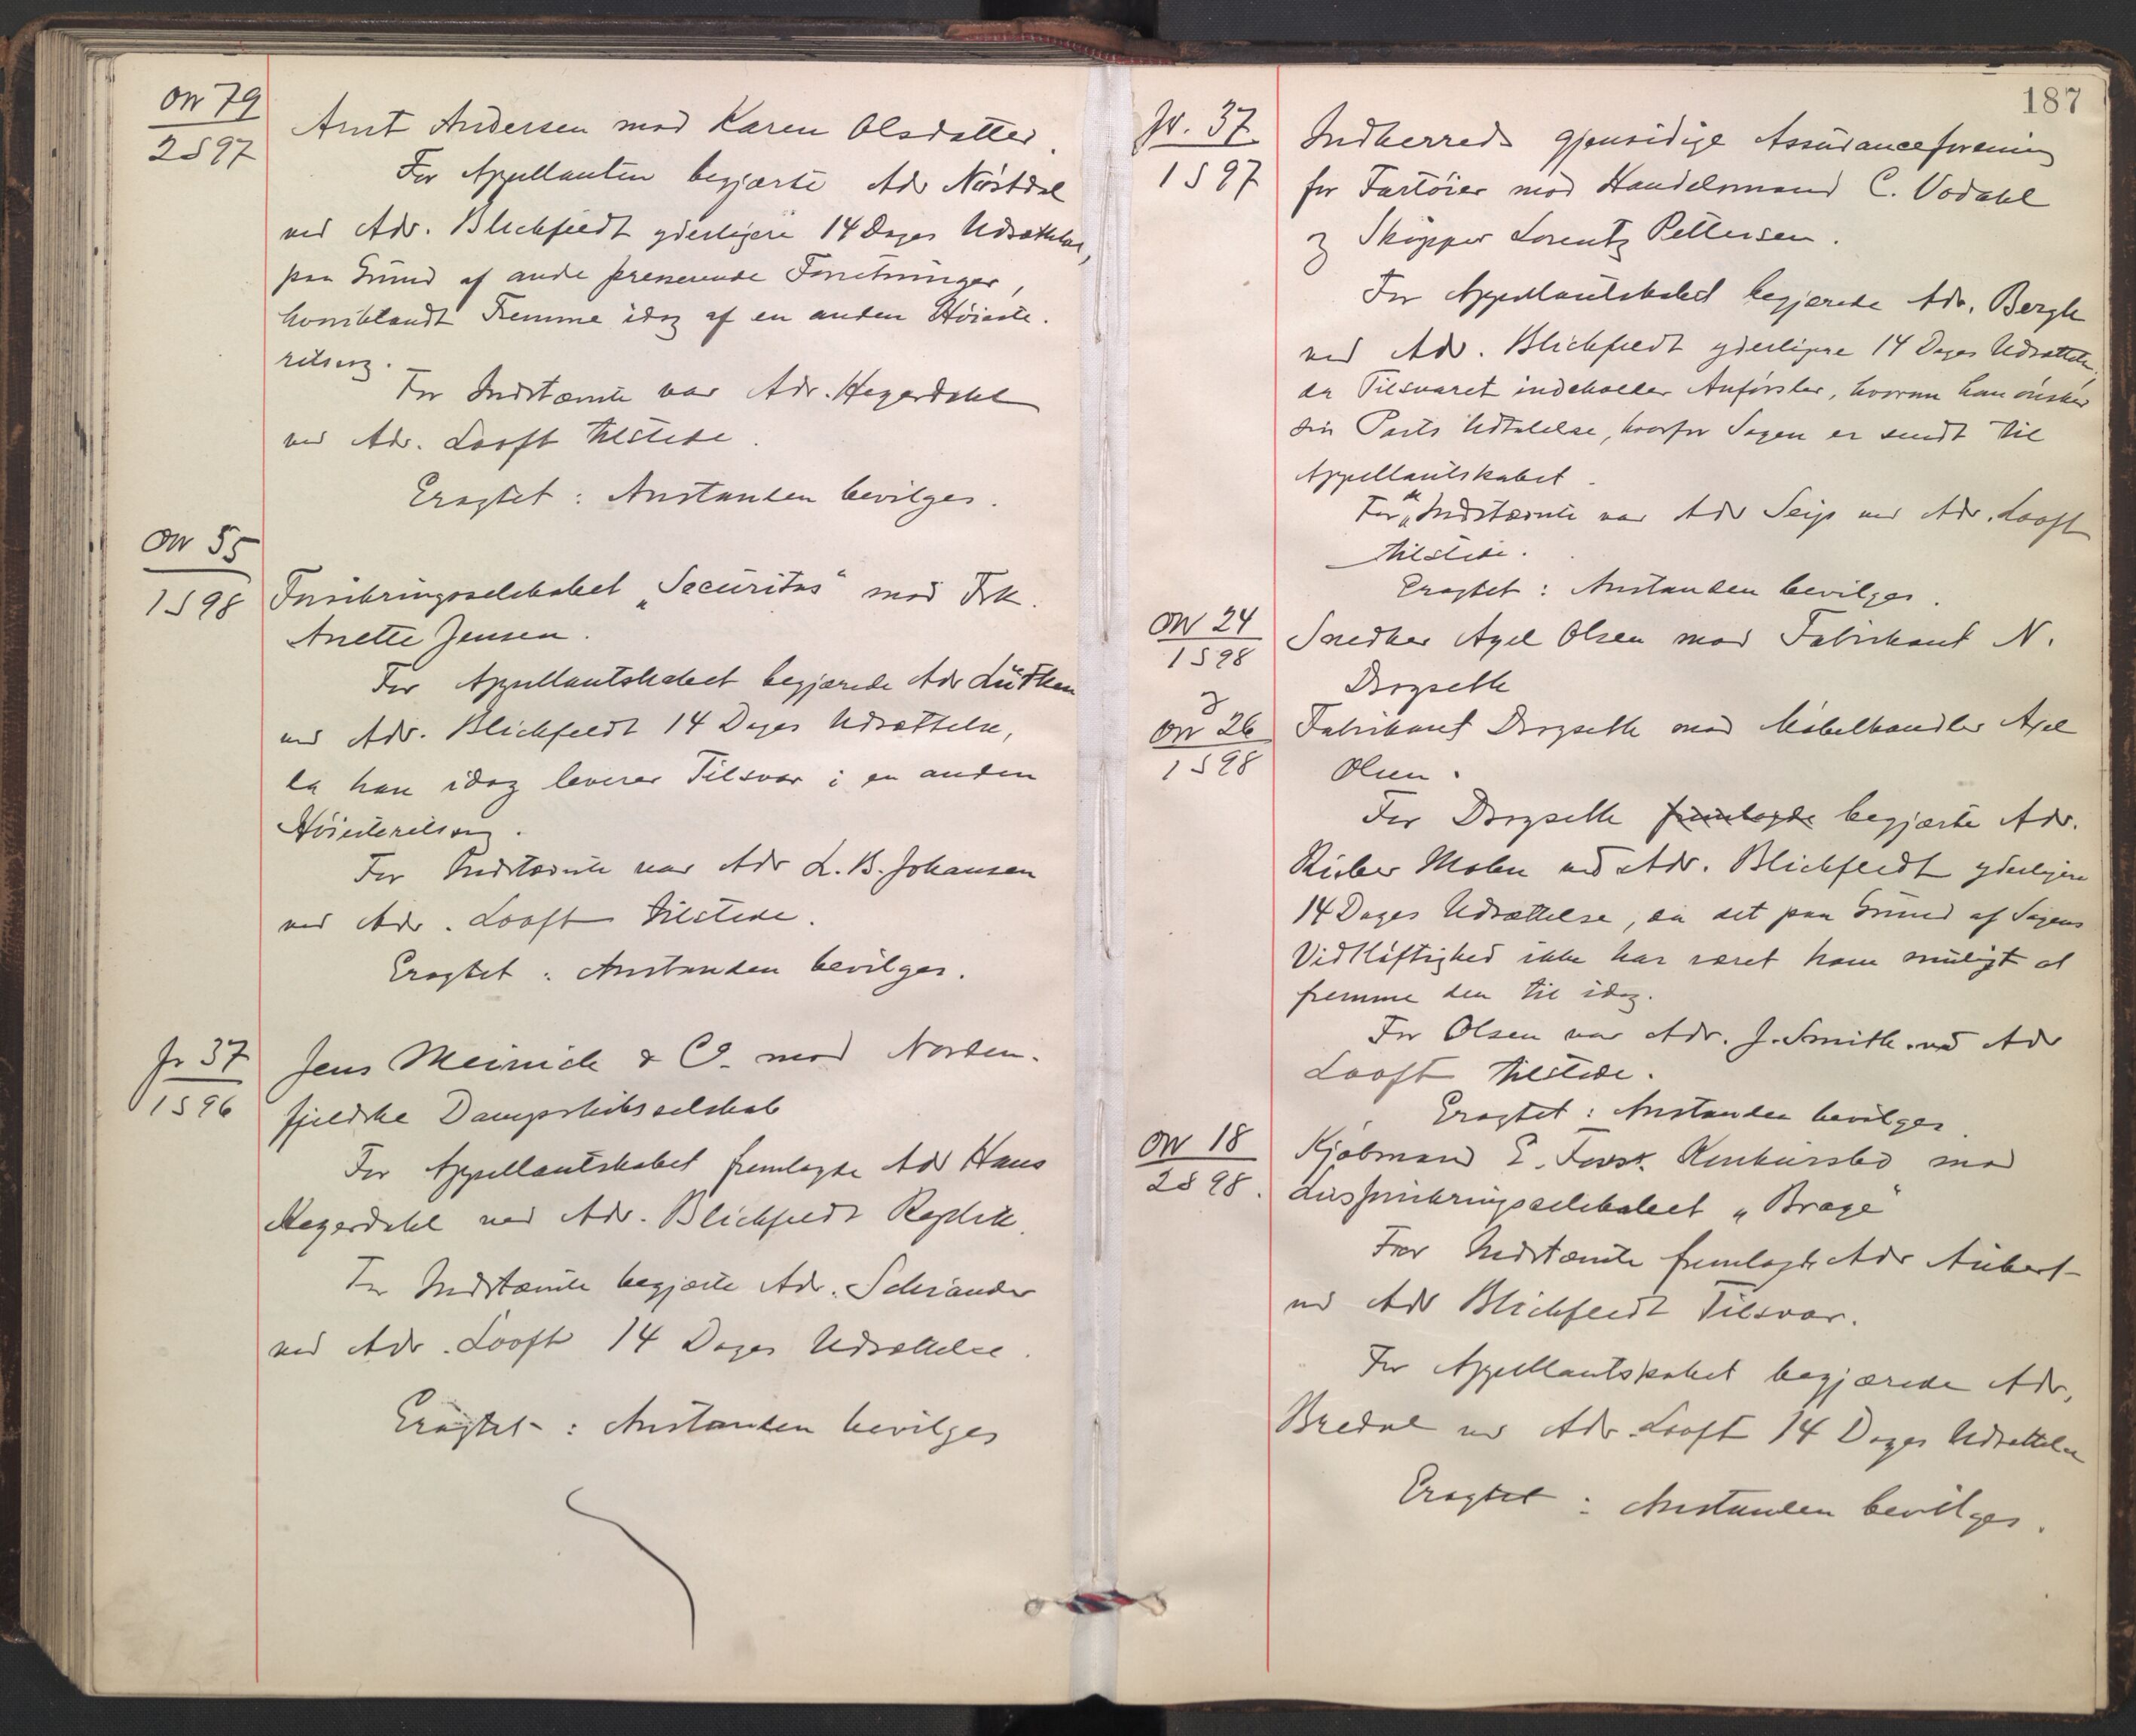 No 79
2 S 97
Arnt Andersen mod Karen Olsdatter.
For Appellanten begjærte Adv Nöstdal
ved Adv. Blichfeldt yderligere 14 Dages Udsættelse,
paa Grund af andre presserende Forretninger,
hvoriblandt Fremme idag af en anden Höieste-
retssag.
For Indstævnte var Adv. Hegerdahl
ved Adv. Looft tilstede.
Eragtet: Anstanden bevilges.
No 55
1 S 98
Forsikringsselskabet „Securitas“ mod Frk.
Anette Jensen.
For Appellantskabet begjærede Adv Lütken
ved Adv. Blichfeldt 14 Dages Udsættelse,
da han idag leverer Tilsvar i en anden
Höiesteretssag.
For Indstævnte var Adv L. B. Johansen
ved Adv. Looft tilstede.
Eragtet: Anstanden bevilges.
Jr 37
1 S 96
Jens Meinich & Co. mod Norden-
fjeldske Dampskibsselskab
For Appellantskabet fremlagde Adv Hans
Hegerdahl ved Adv. Blichfeldt Replik.
For Indstævnte begjærte Adv. Schiander
ved Adv. Looft 14 Dages Udsættelse.
Eragtet: Anstanden bevilges
187
Jr. 37
1 S 97
Indherreds gjensidige Assuranceforening
for Fartöier mod Handelsmand C. Vodahl
og Skipper Lorentz Pettersen.
For Appellantskabet begjærede Adv. Bergh
ved Adv. Blichfeldt yderligere 14 Dages Udsættelse,
da Tilsvaret indeholder Anförsler, hvorom han önsker
sin Parts Udtalelse, hvorfor Sagen er sendt til
Appellantskabet.
For de Indstævnte var Adv Seip ved Adv. Looft
tilstede.
Eragtet: Anstanden bevilges.
No 24
1 S 98
Snedker Axel Olsen mod Fabrikant N.
Drogseth
og
No 26
1 S 98
Fabrikant Drogseth mod Möbelhandler Axel
Olsen.
For Drogseth fremlagde begjærte Adv.
Rieber Mohn ved Adv. Blichfeldt yderligere
14 Dages Udsættelse, da det paa Grund af Sagens
Vidtlöftighed ikke har været ham muligt at
fremme den til idag.
For Olsen var Adv. J. Smith ved Adv
Looft tilstede.
Eragtet: Anstanden bevilges.
No 18
2 S 98.
Kjöbmand E. Konkursbo mod
Livsforsikringsselskabet „Brage“
For Indstævnte fremlagde Adv Aubert
ved Adv Blichfeldt Tilsvar.
For Appellantskabet begjærede Adv.
Bredal ved Adv. Looft 14 Dages Udsættelse
Eragtet: Anstanden bevilges.